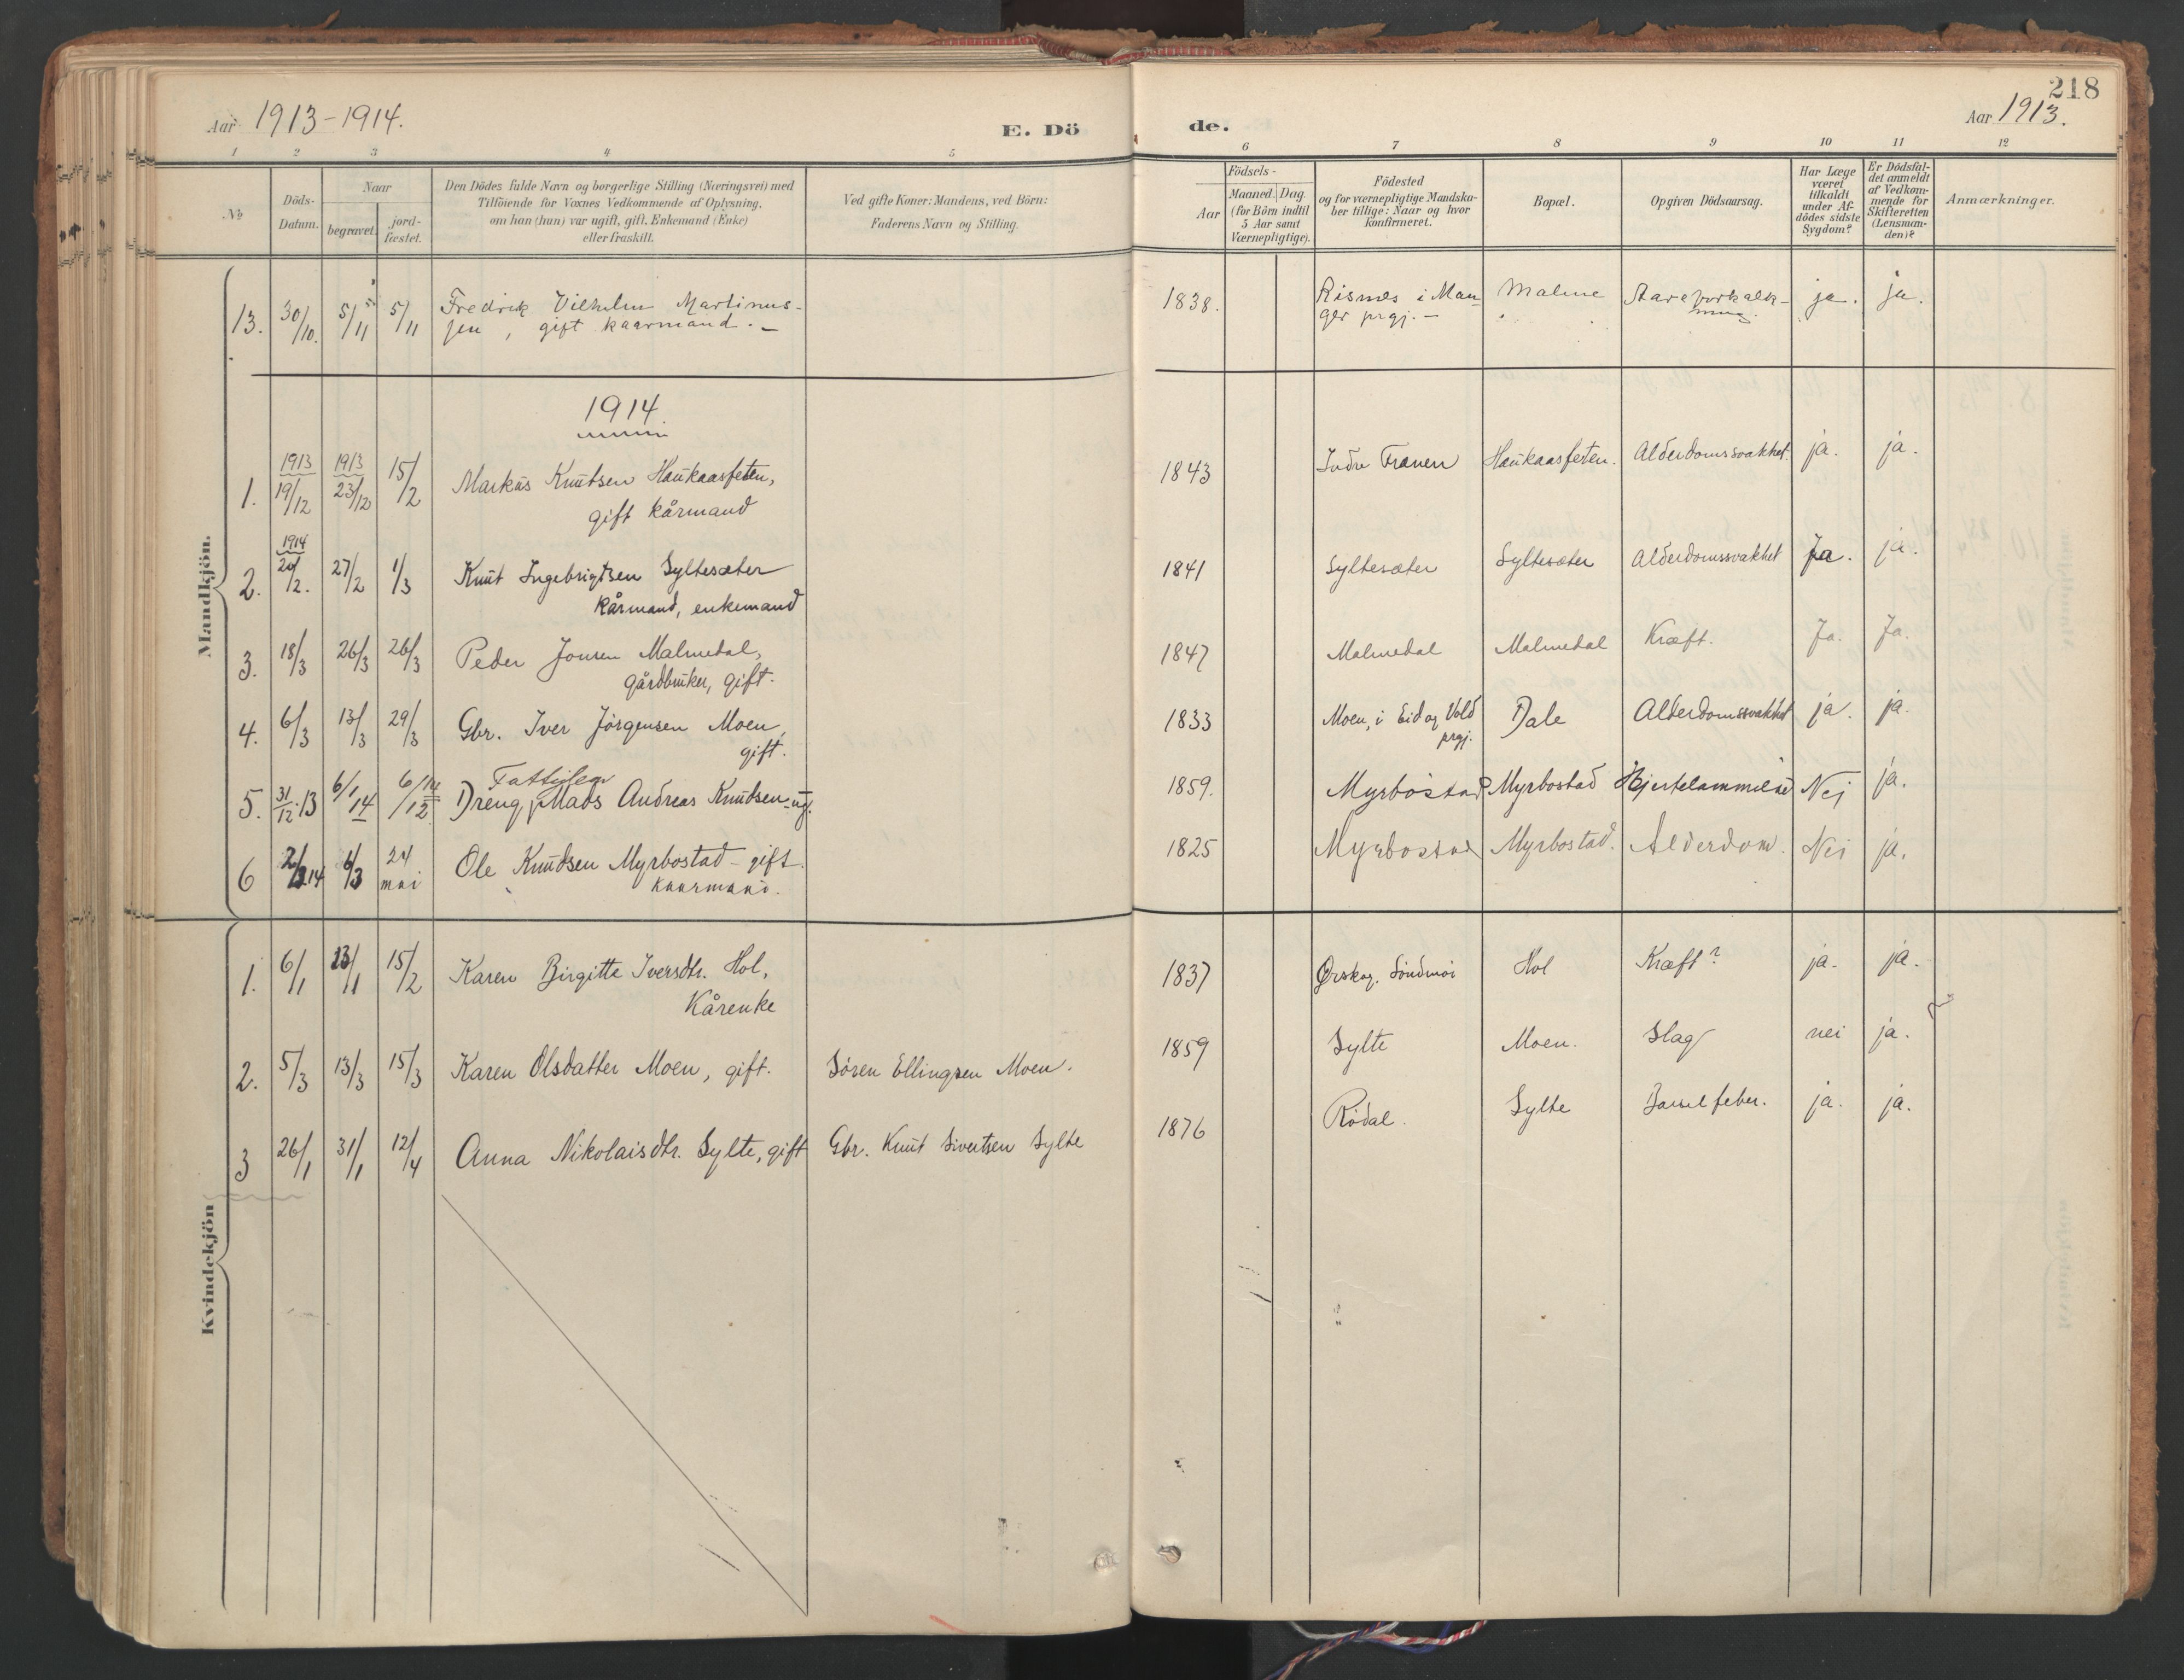 218
Aar 1913-1914.
E. Dö
de.
Aar 1913.
1 2 3 4 5 6 7 8 9 10 11 12
№
Döds-
Datum.
Naar
begravet.
jord-
fæstet.
Den Dödes fulde Navn og borgerlige Stilling (Næringsvei) med
Tilföiende for Voxnes Vedkommende af Oplysning,
om han (hun) var ugift, gift, Enkemand (Enke)
eller fraskilt.
Ved gifte Koner: Mandens, ved Börn:
Faderens Navn og Stilling.
Födsels-
Aar
Maaned. Dag.
(for Börn indtil
5 Aar samt
Værnepligtige).
Födested
og for værnepligtige Mandska-
ber tillige: Naar og hvor
konfirmeret.
Bopæl.
Opgiven Dödsaarsag.
Har Læge
været
tilkaldt
under Af-
dödes sidste
Sygdom?
Er Dödsfal-
det anmeldt
af Vedkom-
mende for
Skifteretten
(Lensman-
den)?
Anmærkninger.
Mandkjön.
13. 30/10. 5/11 5/11 Fredrik Vilhelm Martinus-
sen, gift kaarmand. -
1838. Risnes i Man-
ger prgj. -
Malme Aareforkalk-
ning ja. ja.
1914
1. 1913 19/12 1913 23/12 15/2 Markus Knutsen Haukaasfeten,
gift kårmand
1843 Indre Frænen Haukaasfeten. Alderdomssvakhet. ja. ja.
2. 1914 20/2. 27/2 1/3 Knut Ingebrigtsen Syltesæter
kårmand, enkemand
1841 Syltesæter Syltesæter Alderdomssvakhet Ja. ja.
3. 18/3 26/3 26/3 Peder Jonsen Malmedal,
gårdbruker, gift.
1847 Malmedal Malmedal Kræft. Ja. Ja.
4. 6/3 13/3 29/3 Gbr. Iver Jörgensen Moen,
gift.
1833 Moen, i Eid og Vold
prgj.
Dale Alderdomssvakhet ja. ja.
Fattiglem
5. 31/12.13 6/1 14 6/12 14 Dreng, Mads Andreas Knudsen - ug.
1859. Myrbostad Myrbostad Hjertelammelse Nej ja.
6 2/3 14 6/3 24 mai Ole Knudsen Myrbostad - gift.
kaarmand.
1825 Myrbostad Myrbostad. Alderdom. Nei ja.
Kvindekjön
1. 6/1 13/1 15/2 Karen Birgitte Iversdtr. Hol,
Kårenke
1837 Ørskog. Söndmör Hol Kræft? ja. ja.
2. 5/3 13/3 15/3 Karen Olsdatter Moen, gift. Sören Ellingsen Moen.
1859 Sylte Moen. Slag nei ja.
3 26/1 31/1 12/4 Anna Nikolaisdtr. Sylte, gift Gbr. Knut Sivertsen Sylte
1876 Rödal. Sylte Barselfeber. ja. ja.